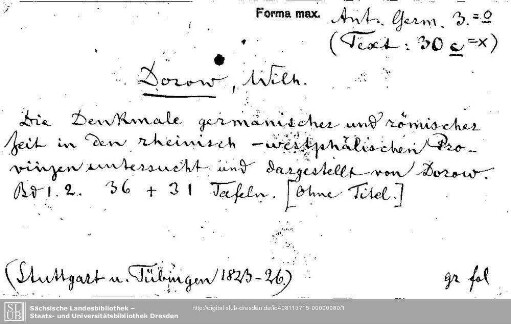 Forma max. Ant. Germ. 3.=o
(Text: 30 c =x)
Dorow, Wilh.
Die Denkmale germanischer und römischer
Zeit in den rheinisch-westphälischen Pro-
vinzen untersucht und dargestellt von Dorow.
Bd 1. 2. 36 + 31 Tafeln. [Ohne Titel.]
(Stuttgart u. Tübingen 1823-26) gr fol
SLUB
Sächsische Landesbibliothek –
Staats- und Universitätsbibliothek Dresden